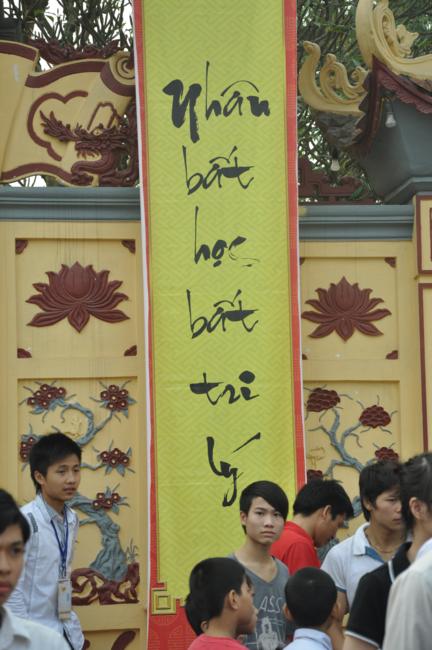 Nhân
bất
học
bất
tri
lý
CLASS